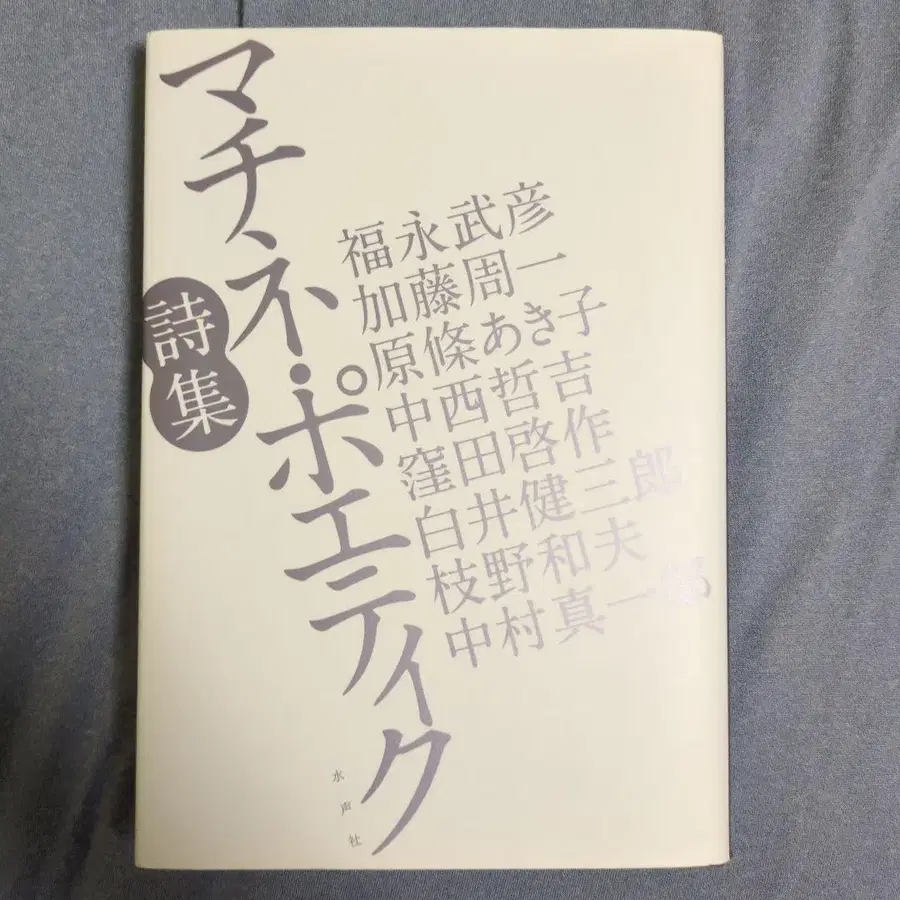 マチネ・ポエティク
詩集
福永武彦
加藤周一
原條あき子
中西哲吉
窪田啓作
白井健三郎
枝野和夫
中村真一郎
水声社